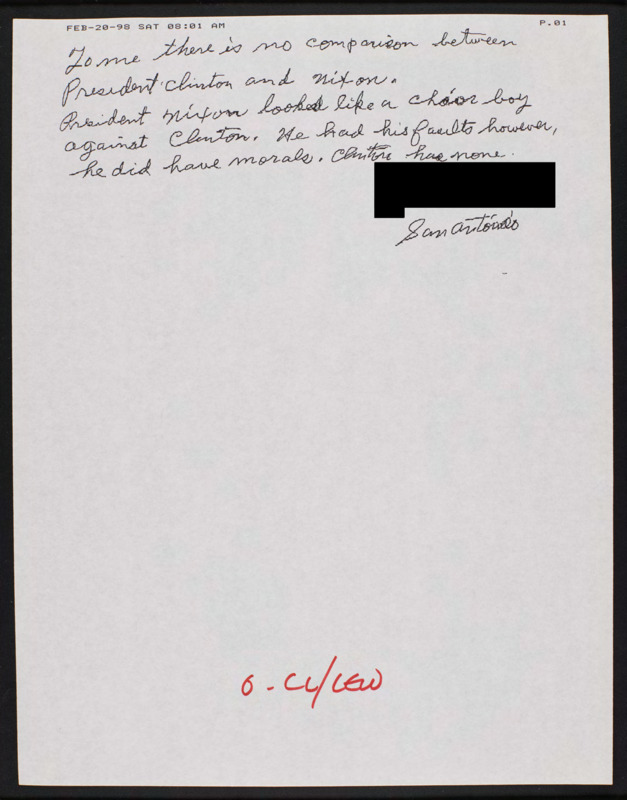 FEB-20-98 SAT 08:01 AM P.01
To me there is no comparison between
President Clinton and Nixon.
President Nixon looked like a choior boy
against Clinton. He had his faults however,
he did have morals. Clinton has none.
San Antonio
O - CL/LEW